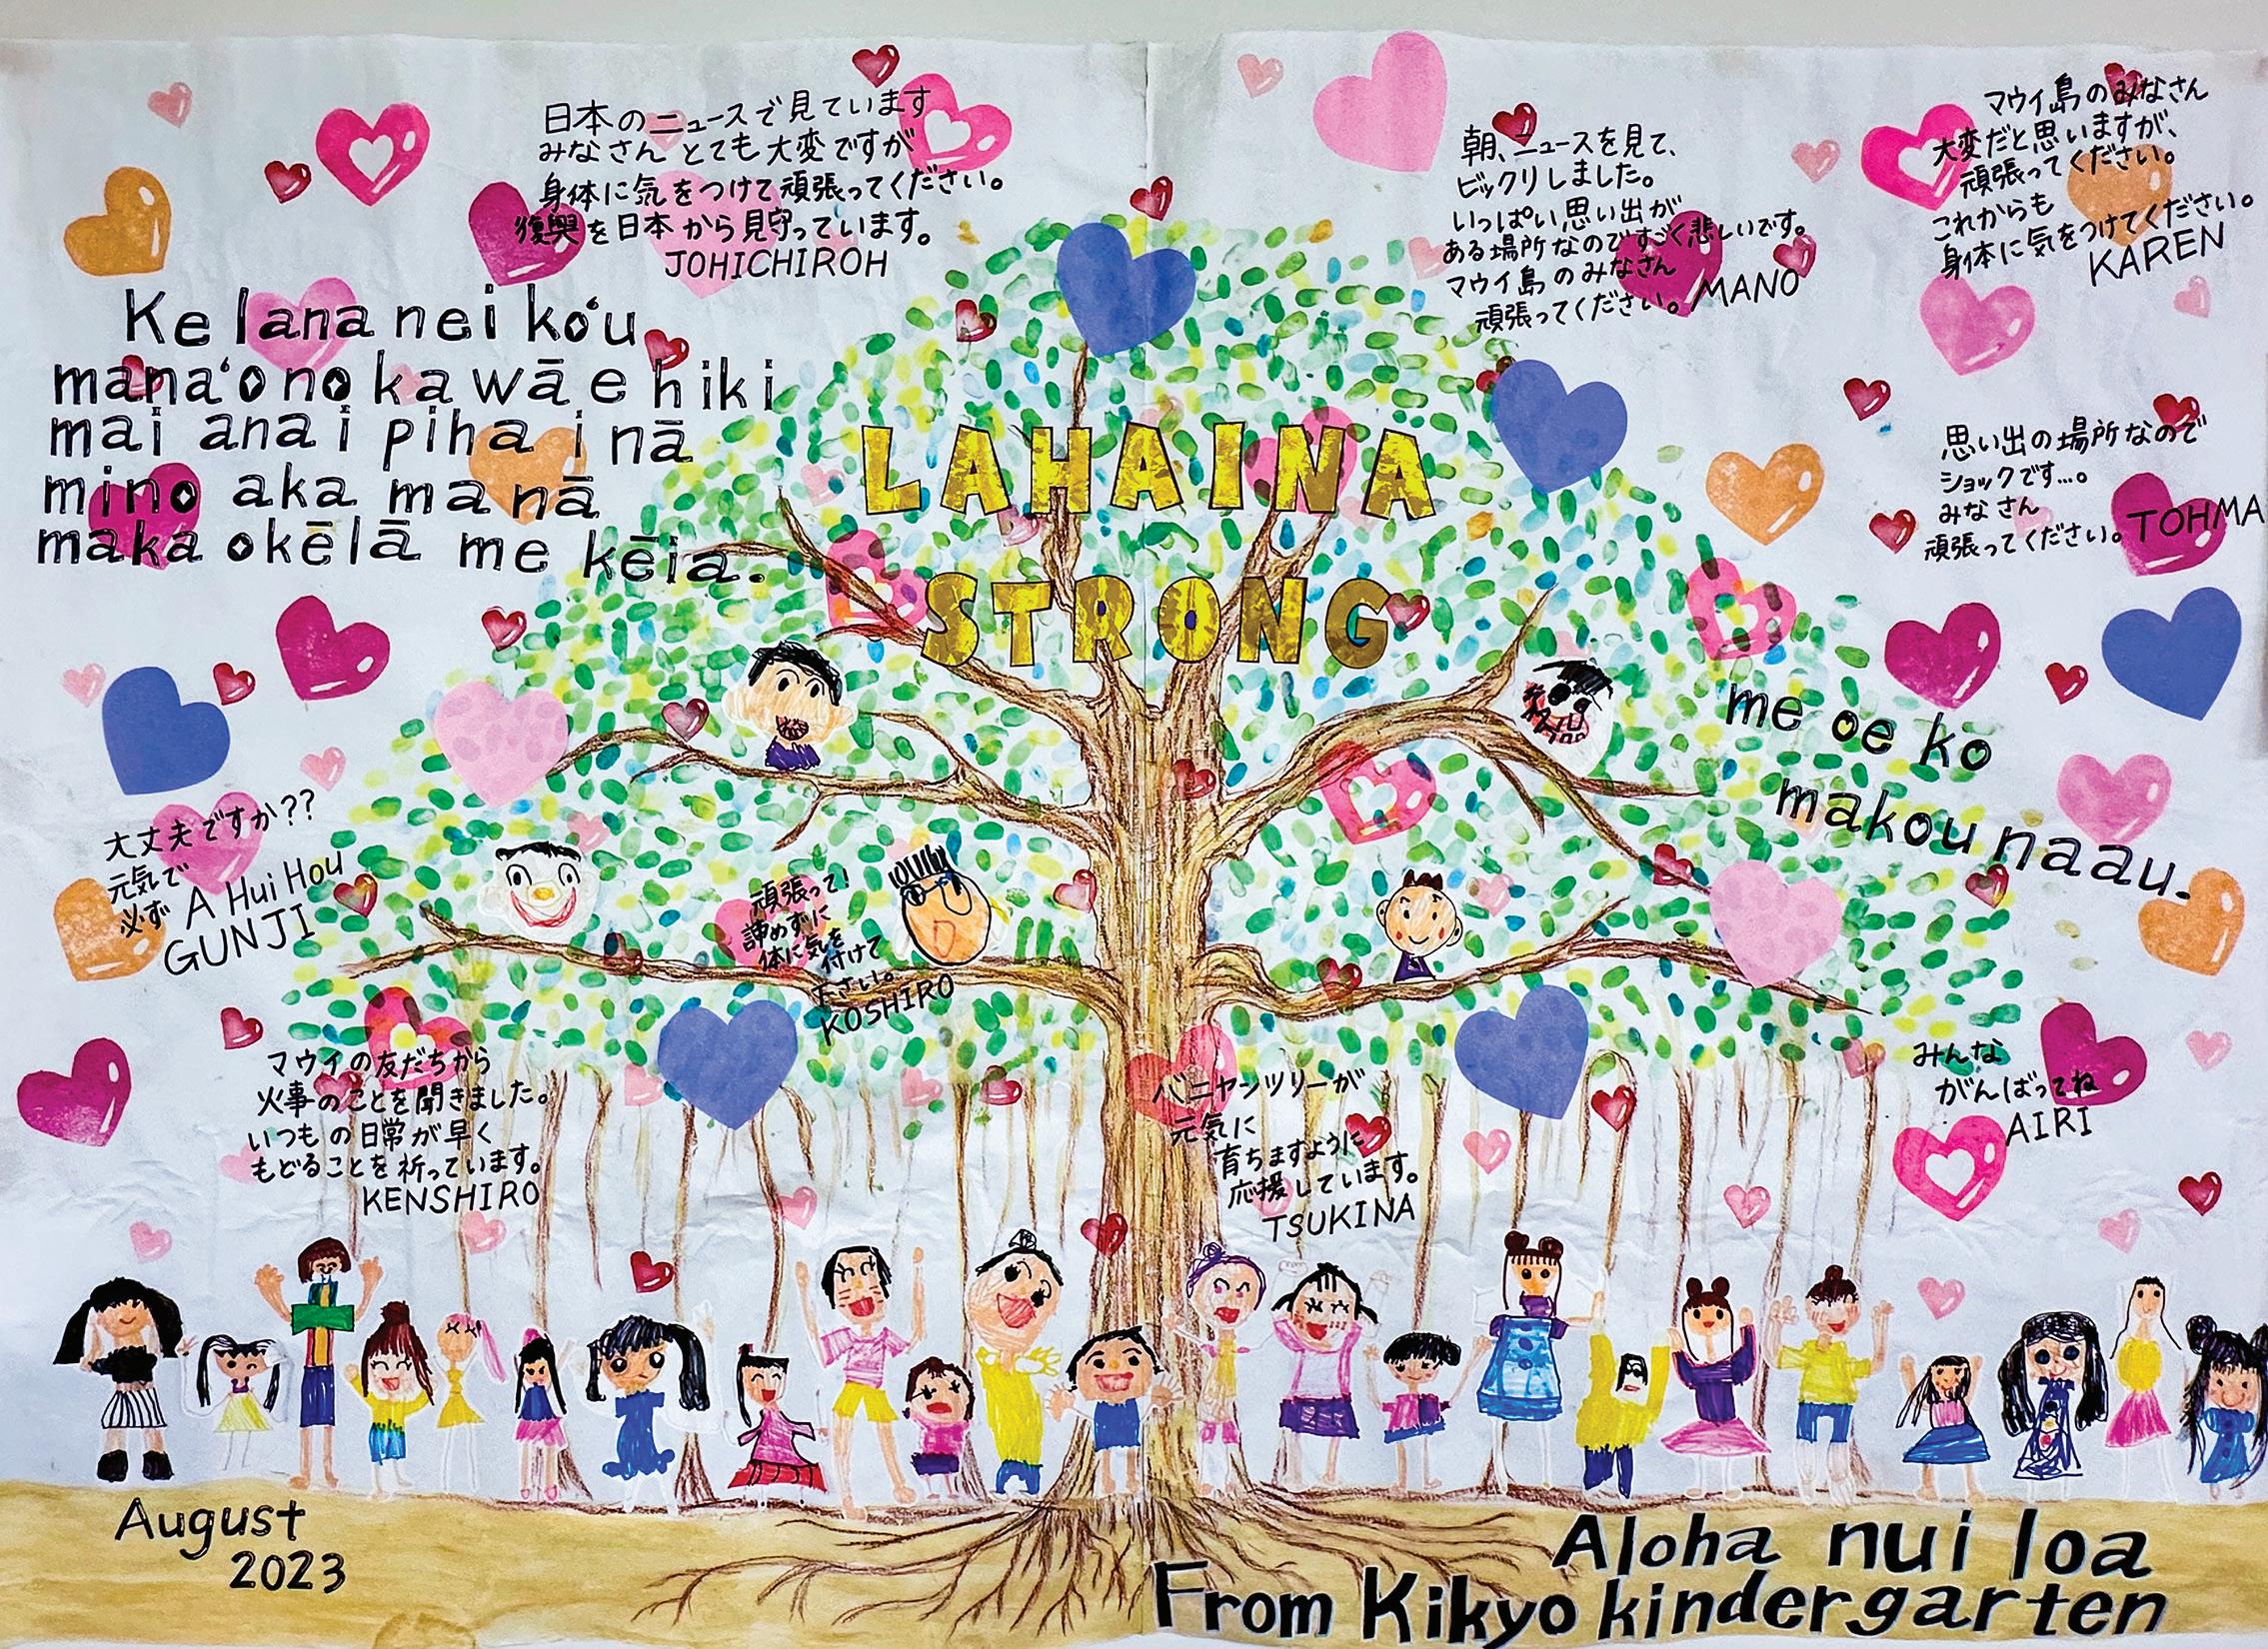 日本のニュースで見ています
みなさん とても大変ですが
身体に気をつけて頑張ってください。
復興を日本から見守っています。
JOHICHIROH
朝、ニュースを見て、
ビックリしました。
いっぱい思い出が
ある場所なのですごく悲しいです。
マウイ島のみなさん
頑張ってください。MANO
マウイ島のみなさん
大変だと思いますが、
頑張ってください。
これからも
身体に気をつけてください。
KAREN
Ke lana nei ko'u
mana'o no ka wā e hiki
mai ana i piha i nā
mino aka ma nā
maka o kēlā me kēia.
LAHAINA
STRONG
思い出の場所なので
ショックです…。
みなさん
頑張ってください。TOHMA
me oe kō
makou naau.
大丈夫ですか??
元気で
必ず A Hui Hou
GUNJI
頑張って!
諦めずに
体に気を
付けて
下さい。
KOSHIRO
マウイの友だちから
火事のことを聞きました。
いつもの日常が早く
もどることを祈っています。
KENSHIRO
バニヤンツリーが
元気に
育ちますように
応援しています。
TSUKINA
みんな
がんばってね
AIRI
August
2023
Aloha nui loa
From Kikyo kindergarten